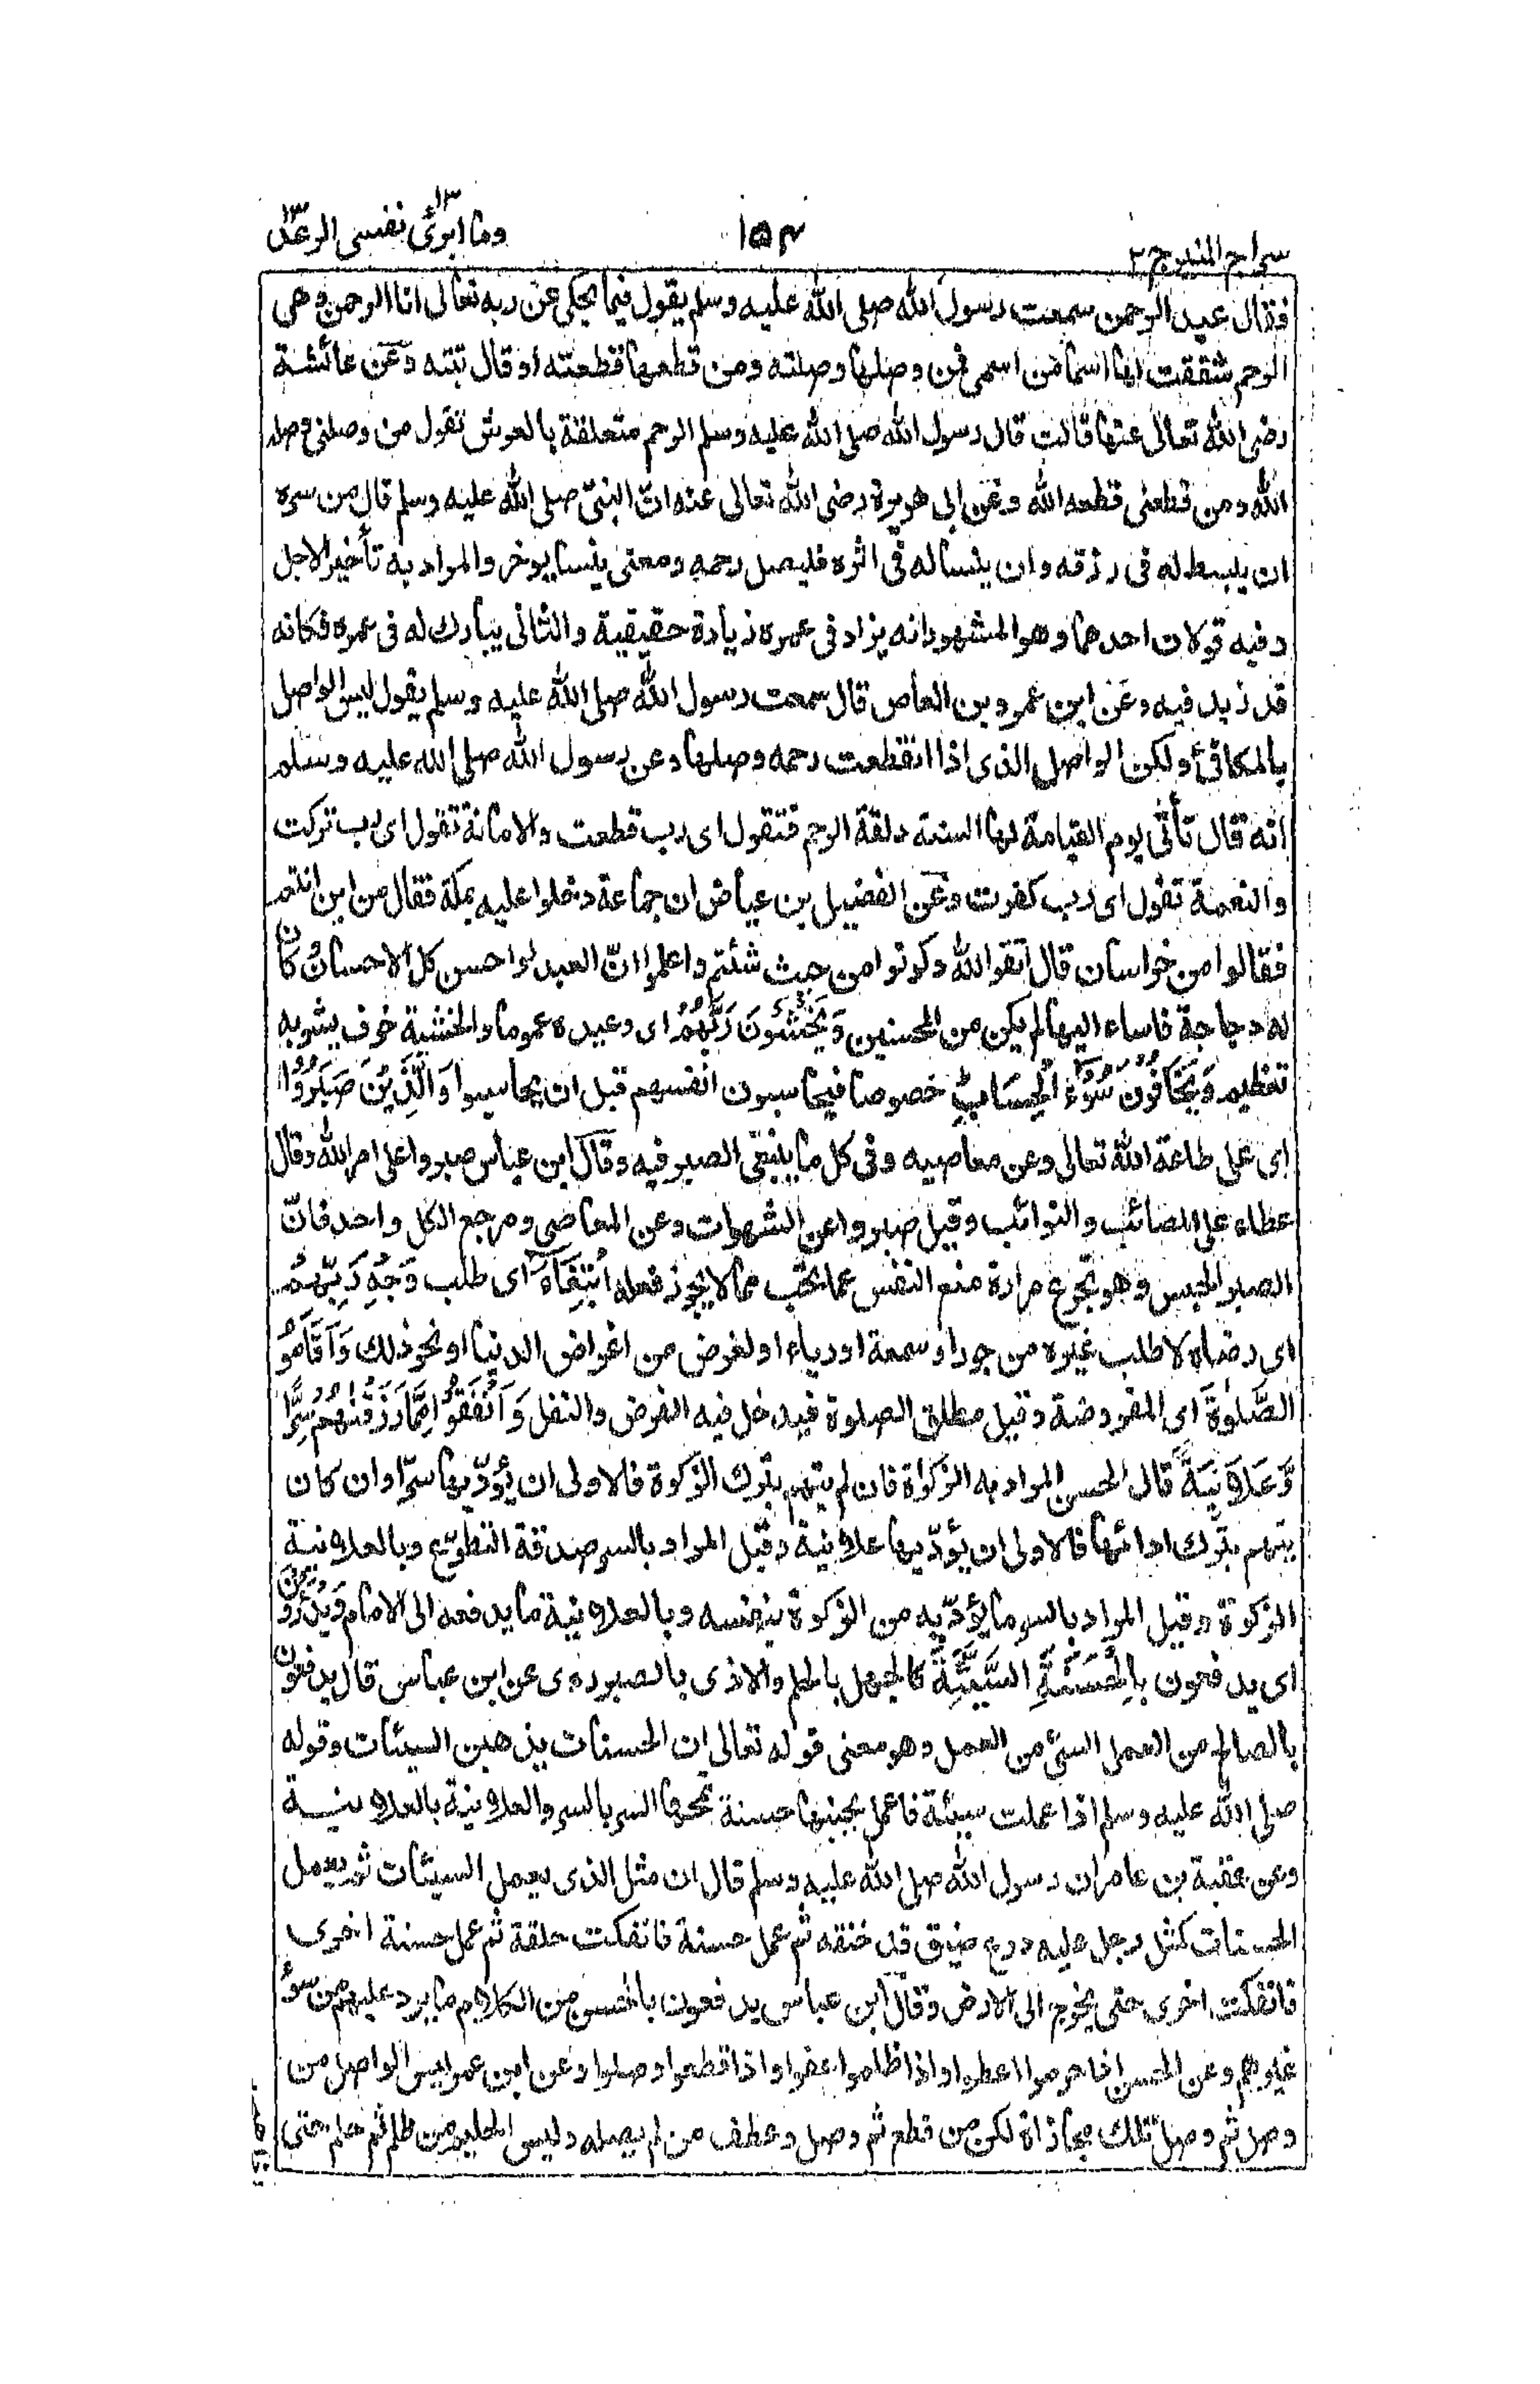 سراج المنير ج ٢
١٥٤
وما ابرئ نفسى ١٣ الرعد ١٣
فقال عبد الرحمن سمعت رسول الله صلى الله عليه وسلم يقول فيما يحكى عن ربه تعالى انا الرحمن وهى
الرحم شققت لها اسما من اسمى فمن وصلها وصلته ومن قطعها قطعته او قال بتته وعن عائشة
رضى الله تعالى عنها قالت قال رسول الله صلى الله عليه وسلم الرحم متعلقة بالعرش تقول من وصلنى وصله
الله ومن قطعنى قطعه الله وعن ابى هريرة رضى الله تعالى عنه انّ النبىّ صلى الله عليه وسلم قال من سره
ان يبسط له فى رزقه وان ينسا له فى اثره فليصل رحمه ومعنى ينسا يوخر والمراد به تأخير الاجل
وفيه قولان احدهما وهو المشهور انه يزاد فى عمره زيادة حقيقية والثانى يبارك له فى عمره فكانه
قد زيد فيه وعن ابن عمرو بن العاص قال سمعت رسول الله صلى الله عليه وسلم يقول ليس الواصل
بالمكافئ ولكن الواصل الذى اذا انقطعت رحمه وصلها وعن رسول الله صلى الله عليه وسلم
انه قال تأتى يوم القيامة لها السنة دلقة الرحم فتقول اى رب قطعت والامانة تقول اى رب تركت
والنعمة تقول اى رب كفرت وعن الفضيل بن عياض ان جماعة دخلوا عليه بمكة فقال من اين انتم
فقالوا من خراسان قال اتقوا الله وكونوا من حيث شئتم واعلموا انّ العبد لو احسن كل الاحسان وكان
له دجاجة فاساء اليها لم يكن من المحسنين وَيَخْشَوْنَ رَبَّهُمْ اى وعيده عموما والخشية خوف يشوبه
تعظيم وَيَخَافُوْنَ سُوْٓءَ الْحِسَابِ خصوصا فيحاسبون انفسهم قبل ان يحاسبوا وَالَّذِيْنَ صَبَرُوا
اى على طاعة الله تعالى وعن معاصيه وفى كل ما ينبغى الصبر فيه وقال ابن عباس صبروا على امر الله وقال
عطاء على المصائب والنوائب وقيل صبروا عن الشهوات وعن المعاصى ومرجع الكل واحد فانّ
الصبر الحبس وهو تجرع مرارة منع النفس عما تحب مما لا يجوز فعله ابْتِغَآءَ اى طلب وَجْهِ رَبِّهِمْ
اى رضاه لا طلب غيره من جور او سمعة او رياء او لغرض من اغراض الدنيا او نحو ذلك وَاَقَامُوا
الصَّلٰوةَ اى المفروضة وقيل مطلق الصلوة فيدخل فيه الفرض والنفل وَاَنْفَقُوْا مِمَّا رَزَقْنٰهُمْ سِرًّا
وَّعَلَانِيَةً قال الحسن المراد به الزكواة فان لم يتهم بترك الزكوة فالاولى ان يؤدّيها سرّا وان كان
يتهم بترك ادائها فالاولى ان يؤدّيها علانية وقيل المراد بالسر صدقة التطوّع وبالعلانية
الزكوة وقيل المراد بالسر ما يؤدّيه من الزكوة بنفسه وبالعلانية ما يدفعه الى الامام وَيَدْرَءُوْنَ
اى يدفعون بِالْحَسَنَةِ السَّيِّئَةَ كالجهل بالحلم والاذى بالصبر روى عن ابن عباس قال يدفعون
بالصالح من العمل السيئ من العمل وهو معنى قوله تعالى ان الحسنات يذهبن السيئات وقوله
صلى الله عليه وسلم اذا عملت سيئة فاعمل بجنبها حسنة تمحها السر بالسر والعلانية بالعلانية
وعن عقبة بن عامر ان رسول الله صلى الله عليه وسلم قال ان مثل الذى يعمل السيئات ثم يعمل
الحسنات كمثل رجل عليه درع ضيق قد خنقه ثم عمل حسنة فانفكت حلقة ثم عمل حسنة اخرى
فانفكت اخرى حتى يخرج الى الارض وقال ابن عباس يدفعون بالحسن من الكلام ما يرد عليهم من سوء
غيرهم وعن الحسن اذا حرموا اعطوا واذا ظلموا عفوا واذا قطعوا وصلوا وعن ابن عمر ليس الواصل من
وصل ثم وصل تلك مجازاة لكن من قطع ثم وصل وعطف من لم يصله وليس الحليم من ظلم ثم حلم حتى